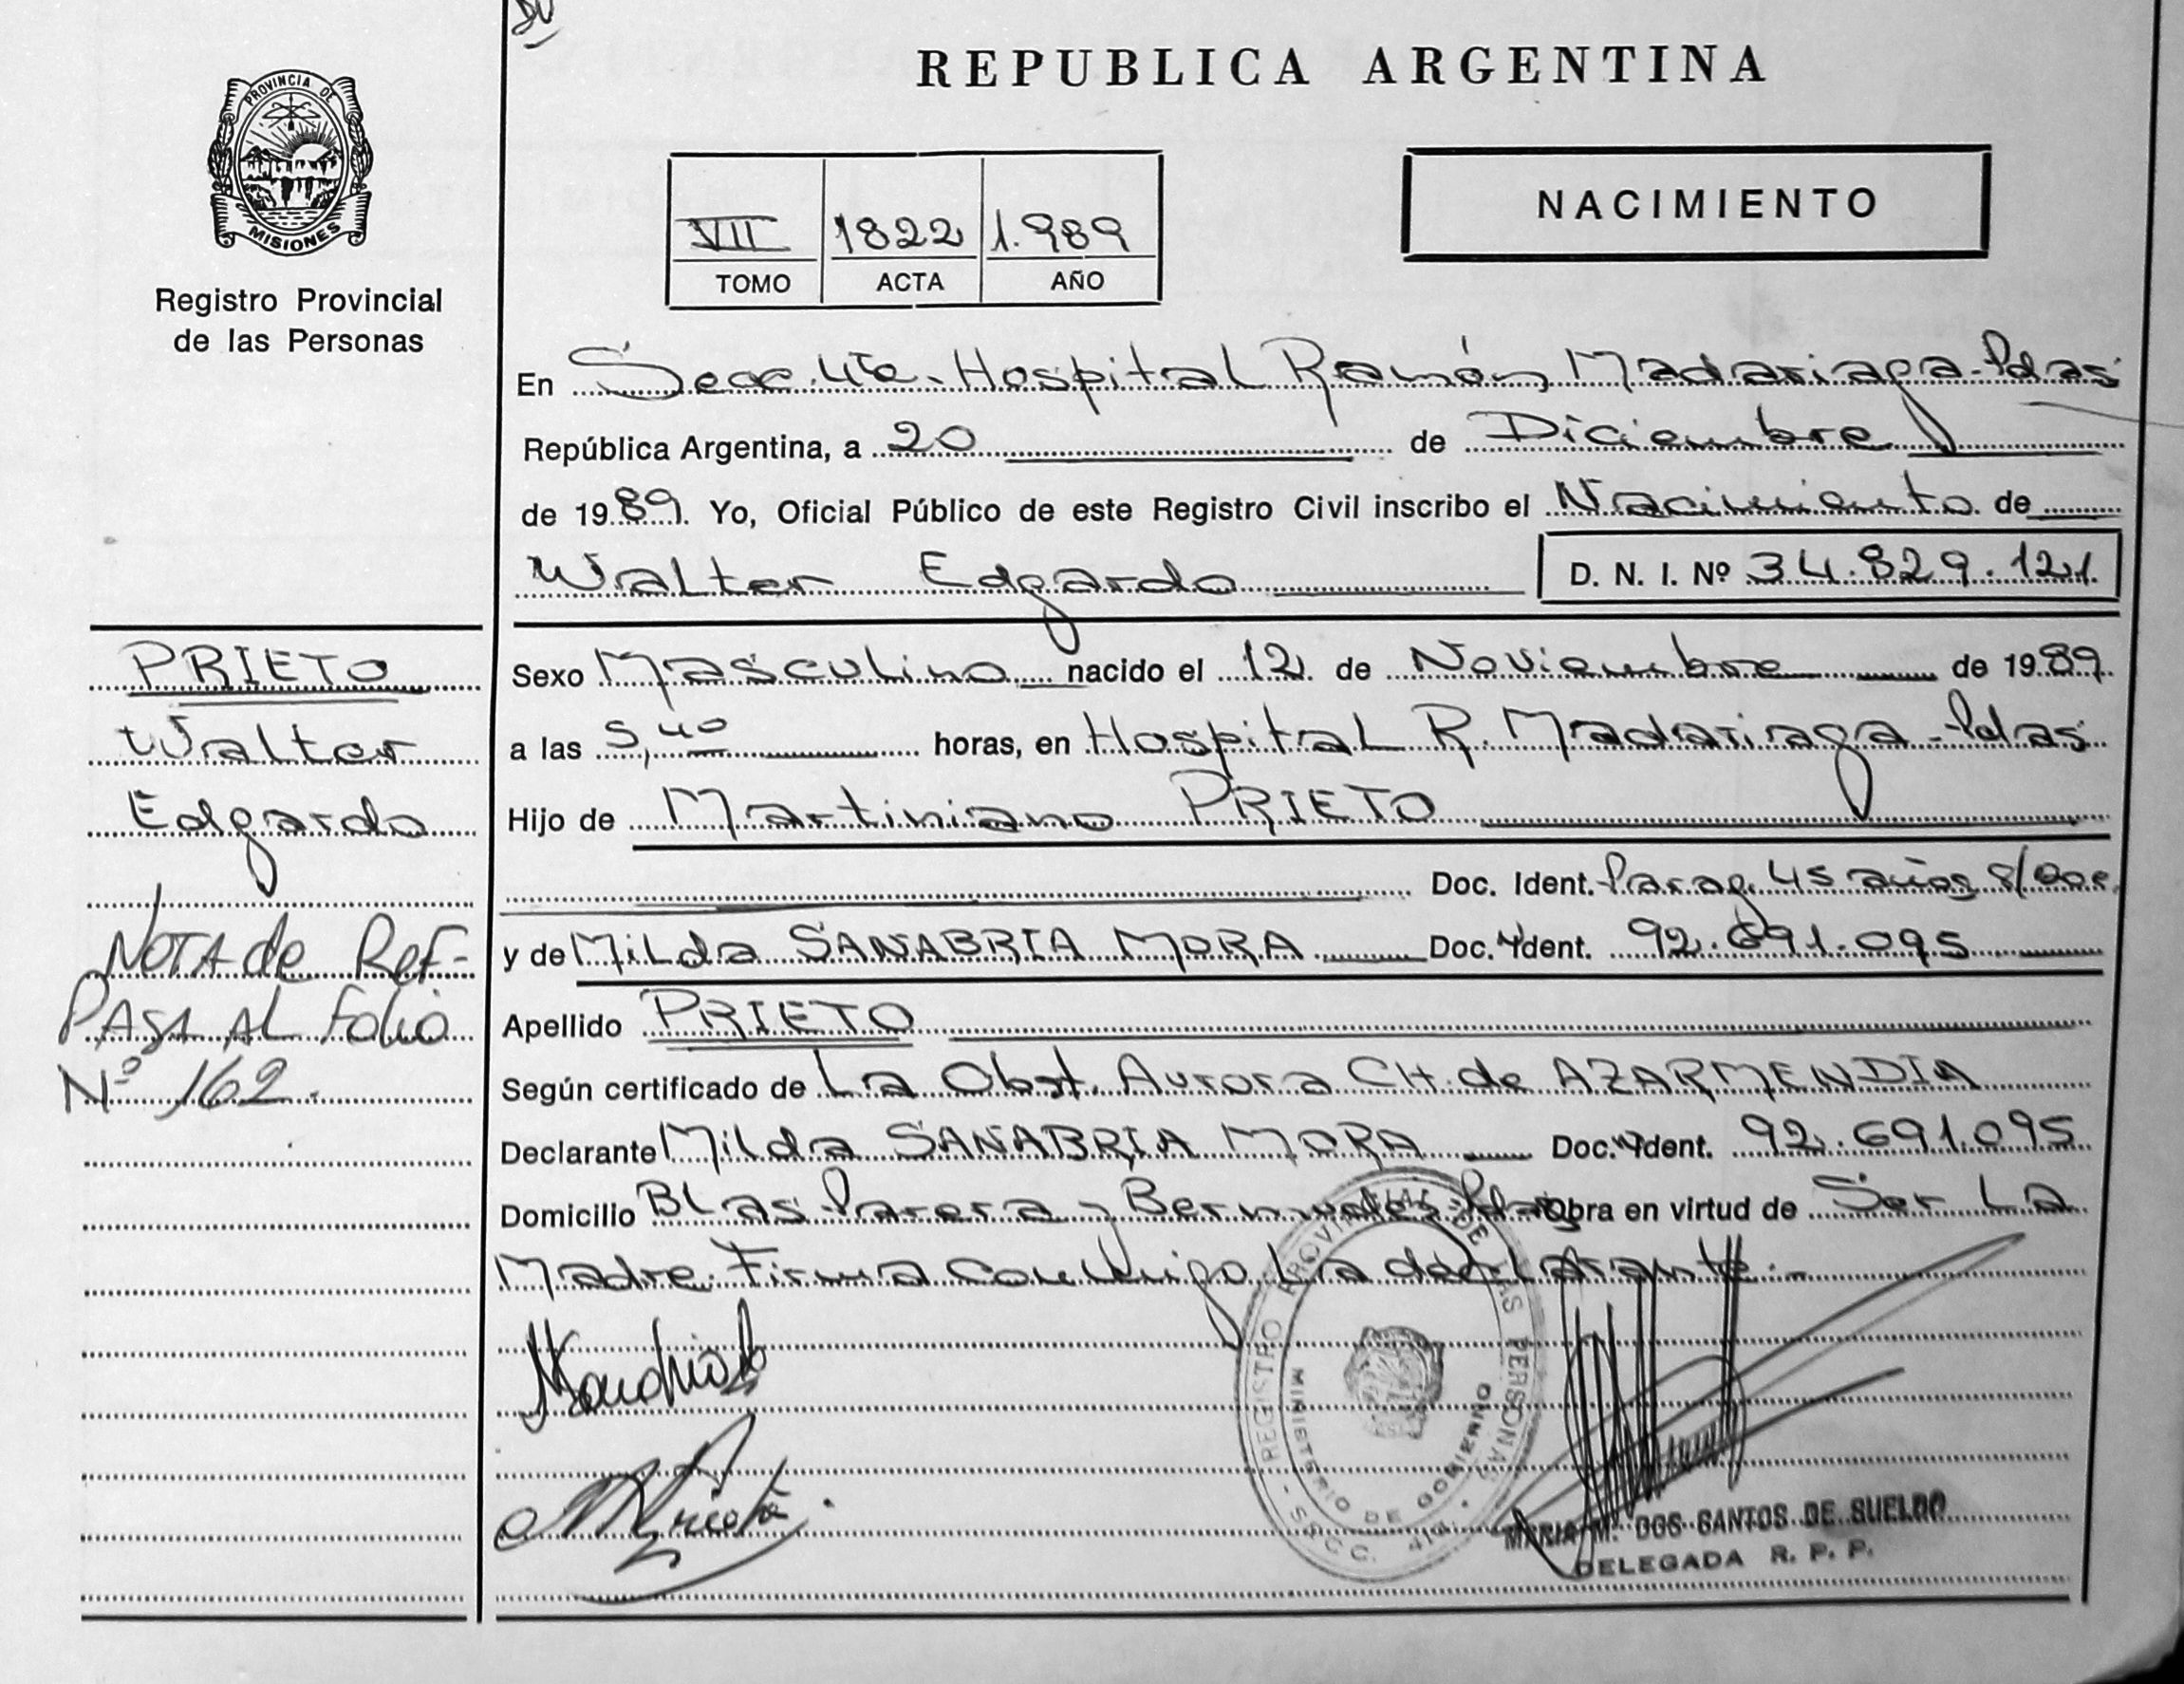 REPUBLICA ARGENTINA
PROVINCIA DE
MISIONES
Registro Provincial
de las Personas
VII 1822 1.989
TOMO ACTA AÑO
NACIMIENTO
En Secc. 4ta. Hospital Ramón Madariaga - Pdas
República Argentina, a 20 de Diciembre
de 1989. Yo, Oficial Público de este Registro Civil inscribo el Nacimiento de
Walter Edgardo D. N. I. Nº 34.829.121
PRIETO
Walter
Edgardo
NOTA de Ref-
PASA AL Folio
Nº 162.
Sexo Masculino nacido el 12 de Noviembre de 1989.
a las 5,40 horas, en Hospital R. Madariaga - Pdas
Hijo de Martiniano PRIETO
Doc. Ident. Parag. 45 años s/Doc.
y de Milda SANABRIA MORA Doc. Ident. 92.691.095
Apellido PRIETO
Según certificado de La Obst. Aurora CH. de AZARMENDIA
Declarante Milda SANABRIA MORA Doc. Ident. 92.691.095
Domicilio Blas Parera y Bermudez Pdas Obra en virtud de Ser La
Madre. Firma conmigo La declarante.-
REGISTRO PROVINCIAL DE LAS PERSONAS
MINISTERIO DE GOBIERNO
- SECC. 4ta. -
MARIA M. DOS SANTOS DE SUELDO
DELEGADA R. P. P.